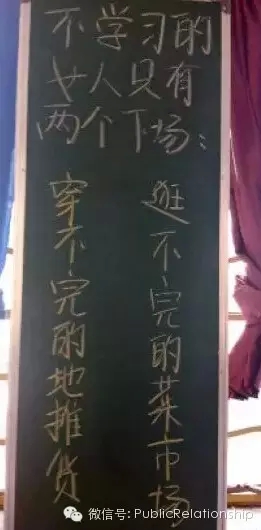 不学习的
女人只有
两个下场：
穿不完的地摊货
逛不完的菜市场
微信号: PublicRelationship